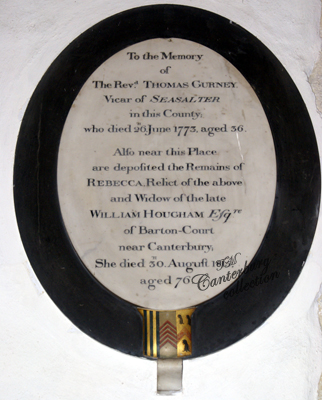 To the Memory
of
The Revd. THOMAS GURNEY
Vicar of SEASALTER
in this County,
who died 26. June 1773, aged 36.
Also near this Place
are deposited the Remains of
REBECCA, Relict of the above
and Widow of the late
WILLIAM HOUGHAM Esqre
of Barton-Court
near Canterbury,
She died 30. August
aged 76
Canterbury
collection